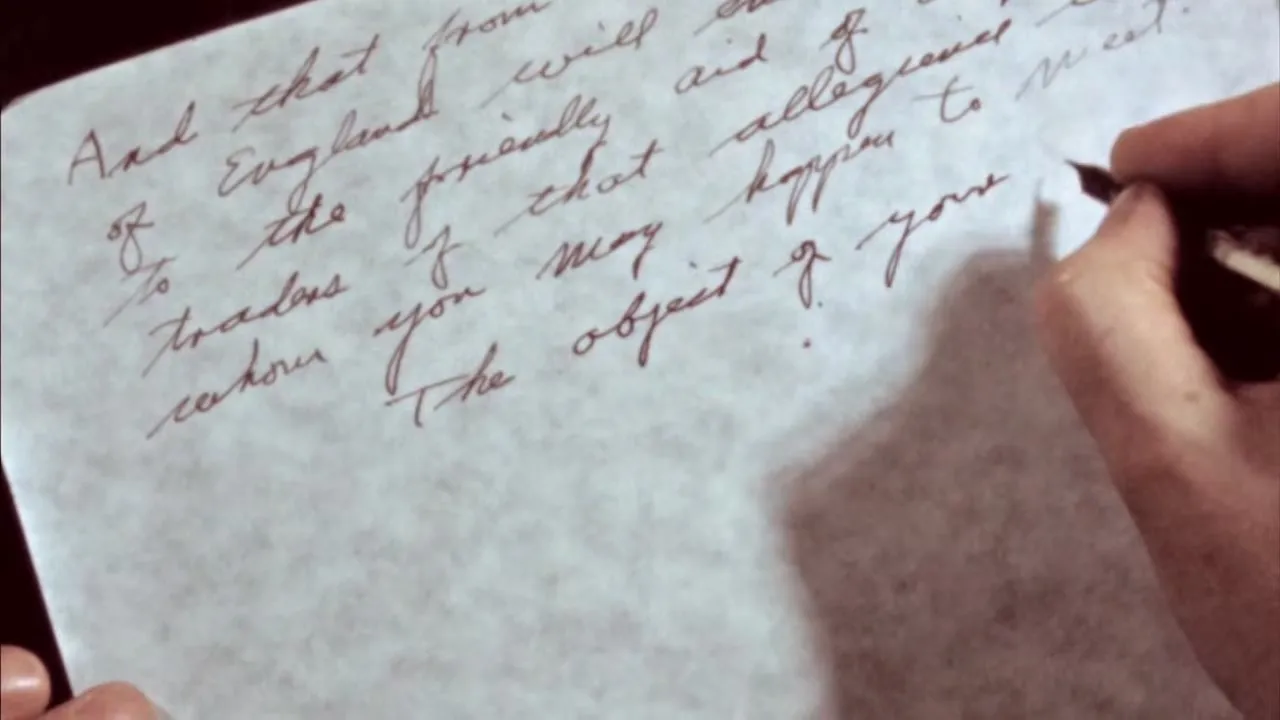 And that from
of England will
to the friendly aid of
traders of that allegiance
whom you may happen to meet.
The object of your